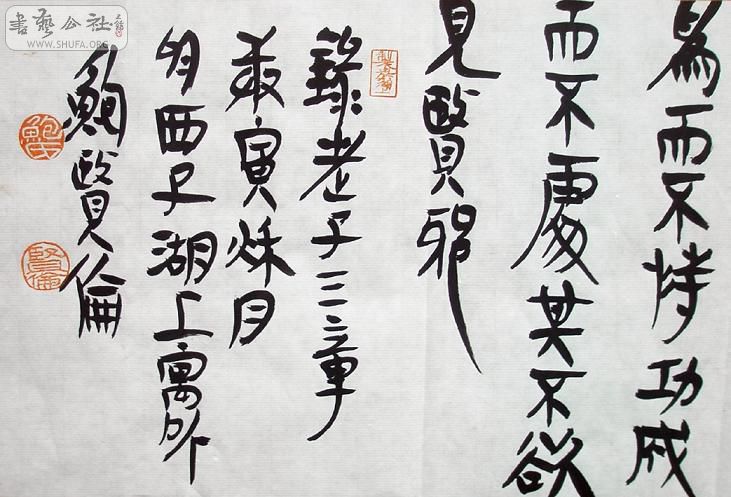 為而不恃功成
而不處其不欲
見賢邪
錄老子三章
庚寅秋月
於西子湖上寓所
鮑賢倫
賢倫
書藝公社
WWW.SHUFA.ORG